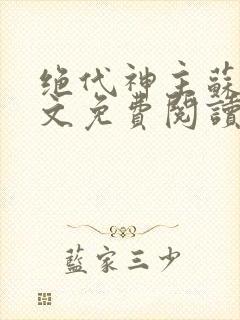 绝代神主蘇
文免費閱讀
藍家三少